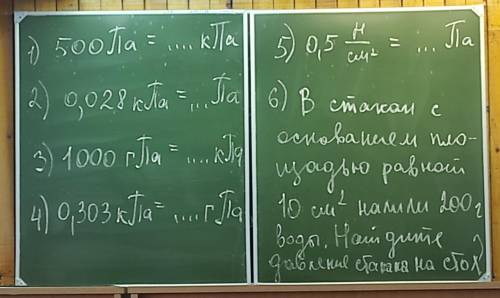 1) 500 Па = .... кПа
2) 0,028 кПа = ... Па
3) 1000 гПа = .... кПа
4) 0,303 кПа = .... гПа
5) 0,5 Н/см² = ... Па
6) В стакан с
основанием пло-
щадью равной
10 см² налили 200 г
воды. Найдите
давление стакана на стол?